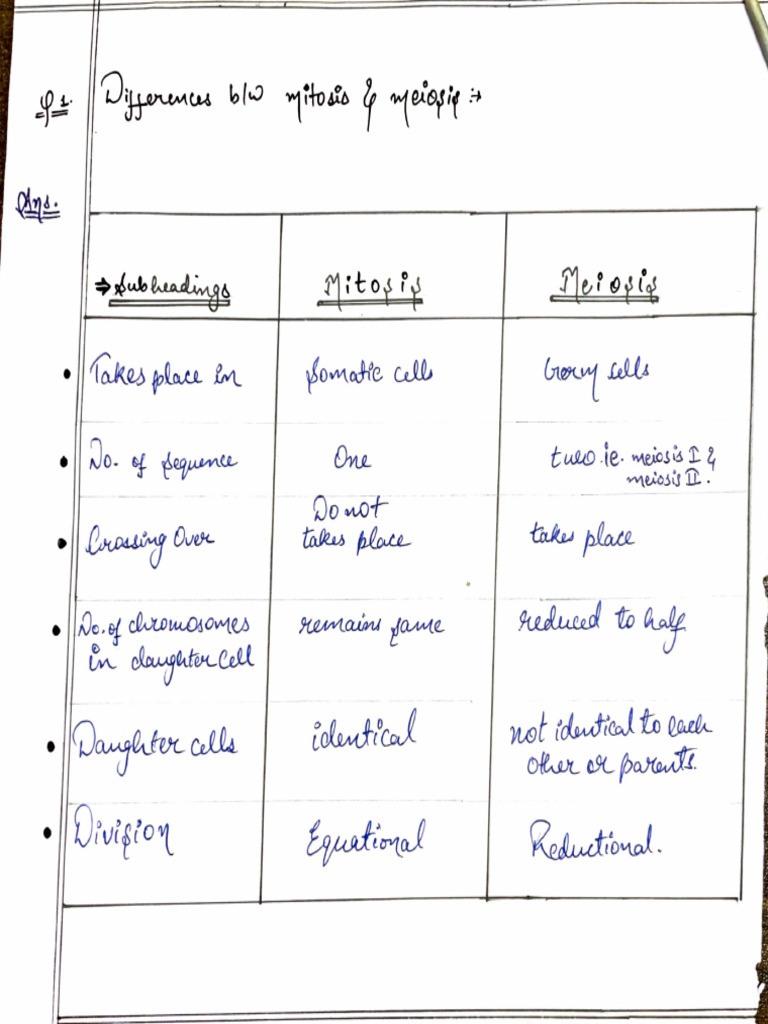 Q1. Differences b/w mitosis & meiosis :→
Ans.
⇒ Subheadings Mitosis Meiosis
• Takes place in Somatic cells Germ cells
• No. of sequence One two. ie. meiosis I &
meiosis II.
Do not
• Crossing Over takes place takes place
• No. of chromosomes remains same reduced to half
in daughter cell
• Daughter cells identical not identical to each
other or parents.
• Division Equational Reductional.